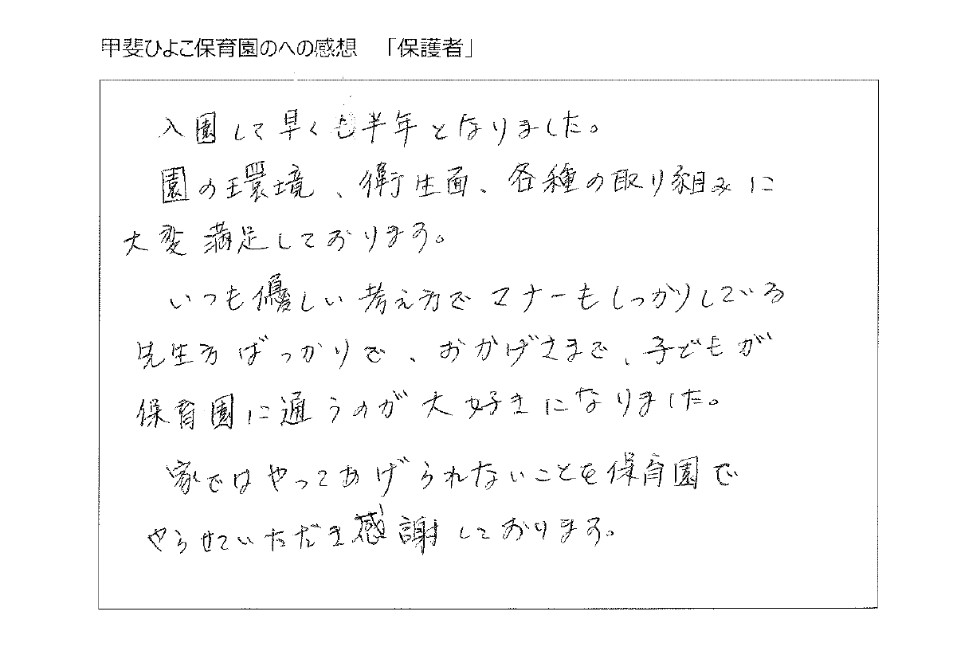 甲斐ひよこ保育園のへの感想 「保護者」
入園して早くも半年となりました。
園の環境、衛生面、各種の取り組みに
大変満足しております。
いつも優しい考え方でマナーもしっかりしている
先生方ばっかりで、おかげさまで、子どもが
保育園に通うのが大好きになりました。
家ではやってあげられないことを保育園で
やらせていただき感謝しております。